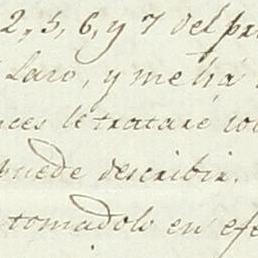 2, 5, 6, y 7 del pr
Laro, y me ha
ces le tratare co
puede describir.
tomadolo en efe